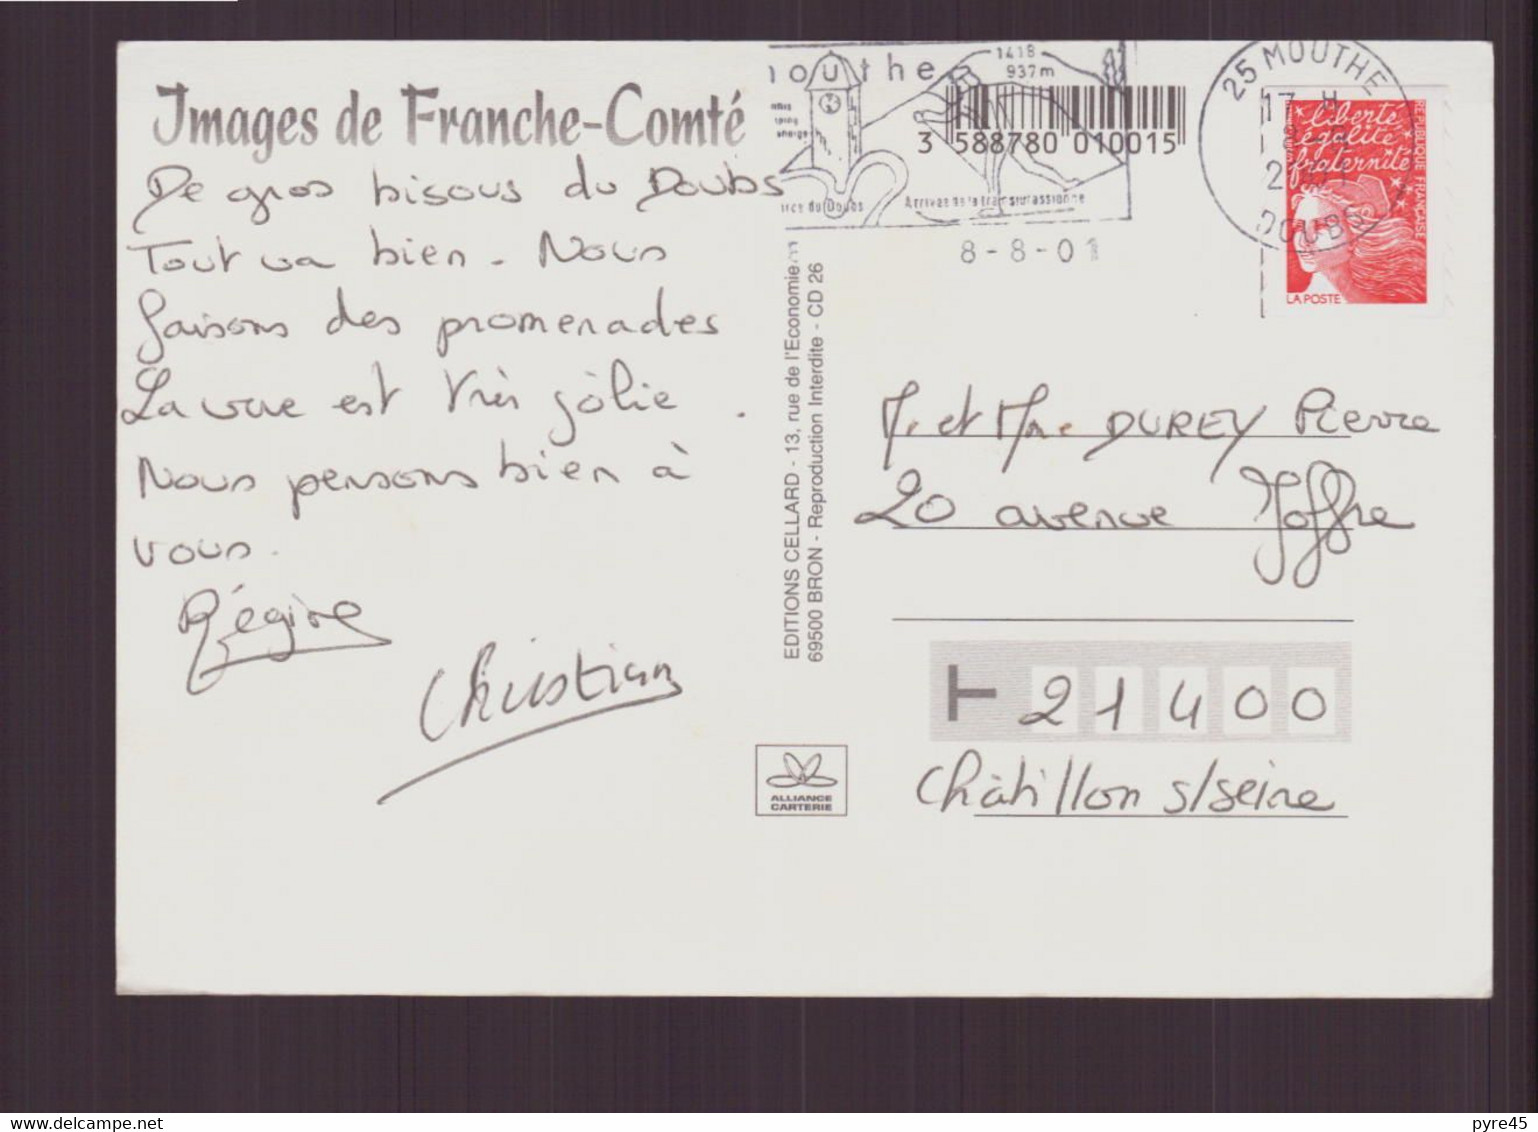 Images de Franche-Comté
De gros bisous du Doubs
Tout va bien. Nous
faisons des promenades
La vue est très jolie.
Nous pensons bien à
vous.
Régine
Christian
outhe
1418
937m
3 588780 010015
Arrivée de la transjurassienne
8-8-01
25 MOUTHE
17 H
DOUBS
liberté
égalité
fraternité
REPUBLIQUE FRANCAISE
LA POSTE
EDITIONS CELLARD - 13, rue de l'Economie
69500 BRON - Reproduction Interdite - CD 26
Mr et Mme DUREY Pierre
20 avenue Joffre
21400
Châtillon s/seine
ALLIANCE
CARTERIE
delcampe.net
pyre45